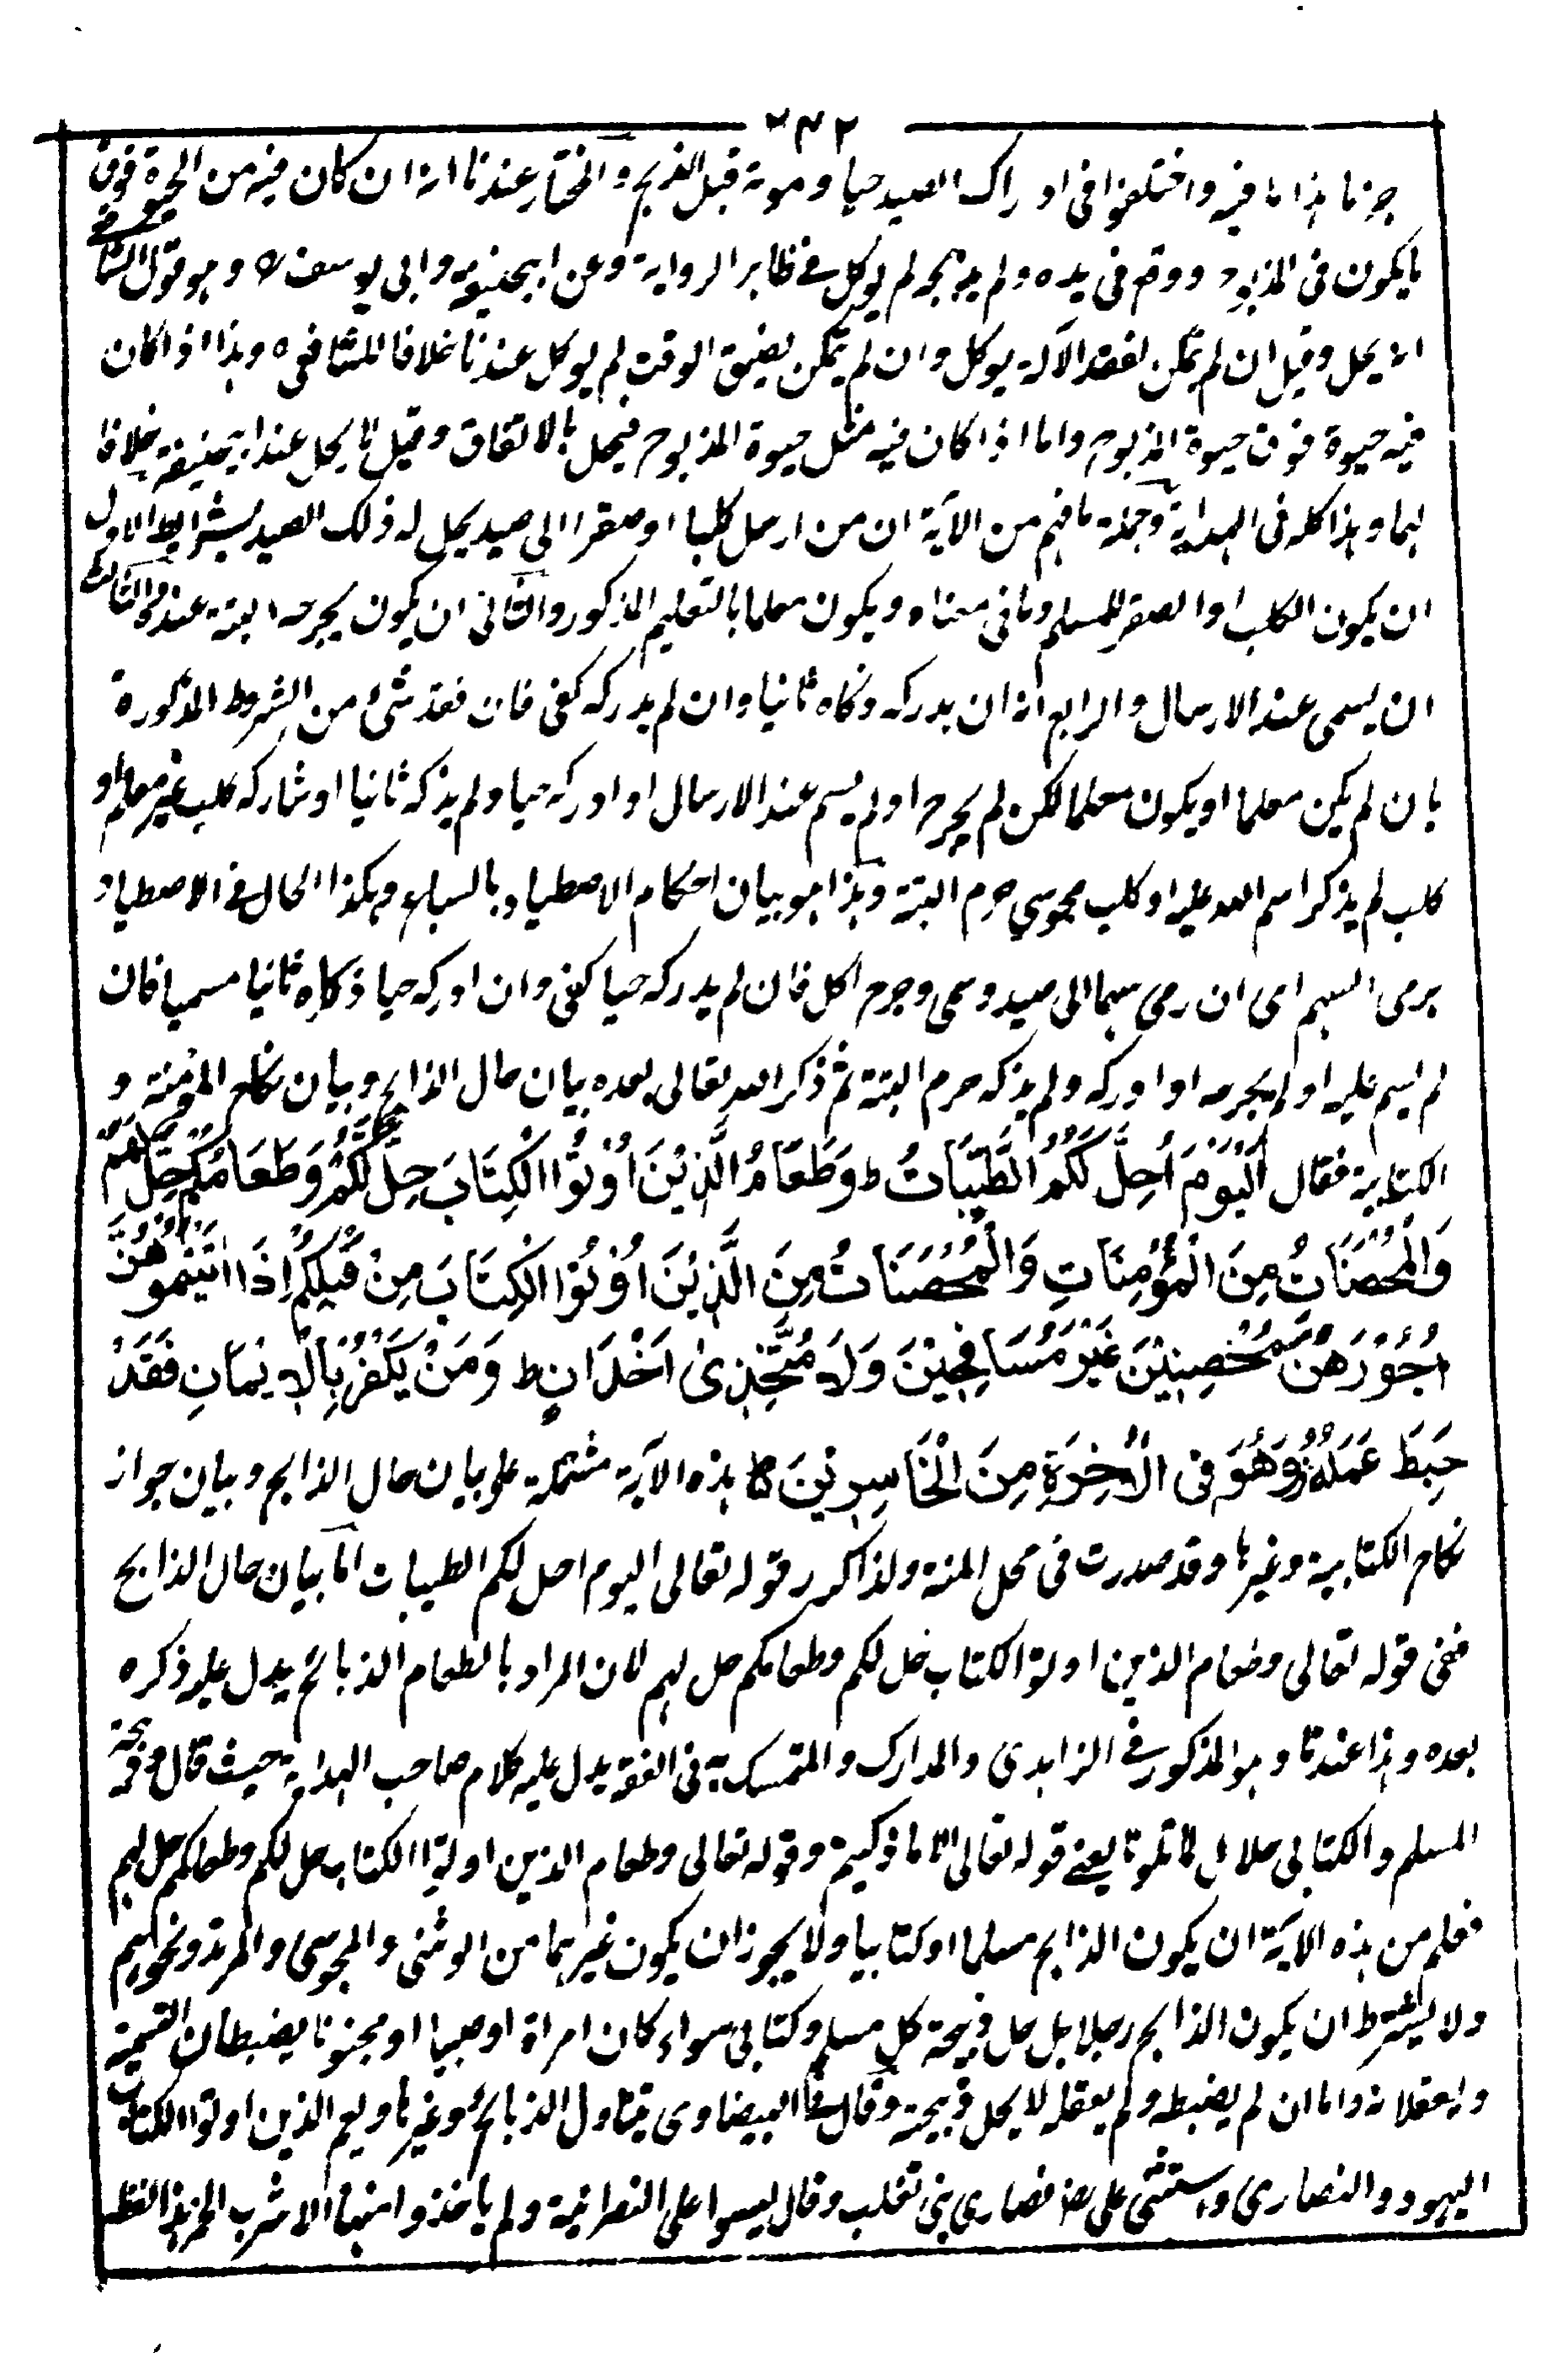 ٣٤٢
جزنا هذا ما فيه واختلفوا فى ادراك الصيد حيا وموته قبل الذبح والمختار عندنا انه ان كان فيه من الحيوة فوق
ما يكون فى المذبوح ووقع فى يده ولم يذبحه لم يوكل فے ظاهر الرواية وعن ابيحنيفة وابى يوسف رح وهو قول الشافعے
انه يحل وقيل ان لم يتمكن لفقد الآلة يوكل وان لم يتمكن بضيق الوقت لم يوكل عندنا خلافا للشافعى ره وهذا اذا كان
فيه حيوة فوق حيوة المذبوح واما اذا كان فيه مثل حيوة المذبوح فيحل بالاتفاق وقيل لا يحل عند ابيحنيفة خلافا
لهما وهذا كله فى الهداية وجملة ما فهم من الآية ان من ارسل كلبا او صقرا الى صيد يحل له ذلك الصيد بشرايط الاول
ان يكون الكلب او الصقر للمسلم وما فى معناه ويكون معلما بالتعليم المذكور والثانى ان يكون يجرحه البتة عنده والثالث
ان يسمى عند الارسال والرابع انه ان يدركه ذكاه ثانيا وان لم يدركه كفى فان فقد شئ من الشروط المذكورة
بان لم يكن معلما او يكون معلما لكن لم يجرح او لم يسم عند الارسال او ادركه حيا ولم يذكه ثانيا او شاركه كلب غير معلم او
كلب لم يذكر اسم الله عليه او كلب مجوسي حرم البتة وهذا هو بيان احكام الاصطياد بالسباع وهكذا الحال فے الاصطياد
برمى السهم اى ان رمى سهما الى صيد وسمى وجرح اكل فان لم يدركه حيا كفى وان ادركه حيا ذكاه ثانيا مسميا فان
لم يسم عليه او لم يجرحه او ادركه ولم يذكه حرم البتة ثم ذكر الله تعالى بعده بيان حال الذابح وبيان نكاح المؤمنة و
الكتابية فقال اَلْيَوْمَ اُحِلَّ لَكُمُ الطَّيِّبَاتُ ط وَطَعَامُ الَّذِيْنَ اُوْتُوا الْكِتَابَ حِلٌّ لَّكُمْ وَطَعَامُكُمْ حِلٌّ لَّهُمْ
وَالْمُحْصَنَاتُ مِنَ الْمُؤْمِنَاتِ وَالْمُحْصَنَاتُ مِنَ الَّذِيْنَ اُوْتُوا الْكِتَابَ مِنْ قَبْلِكُمْ اِذَا اٰتَيْتُمُوْهُنَّ
اُجُوْرَهُنَّ مُحْصِنِيْنَ غَيْرَ مُسَافِحِيْنَ وَلَا مُتَّخِذِىْ اَخْدَانٍ ط وَمَنْ يَكْفُرْ بِالْاِيْمَانِ فَقَدْ
حَبِطَ عَمَلُهٗ وَهُوَ فِى الْاٰخِرَةِ مِنَ الْخَاسِرِيْنَ ط هذه الآية مشتملة على بيان حال الذابح وبيان جواز
نكاح الكتابية وغيرها وقد صدرت فى محل المنة ولذا كرر قوله تعالى اليوم احل لكم الطيبات اما بيان حال الذابح
ففى قوله تعالى وطعام الذين اوتوا الكتاب حل لكم وطعامكم حل لهم لان المراد بالطعام الذبائح يدل عليه ذكره
بعده وهذا عندنا وهو المذكور فے الزاهدى والمدارك والمتمسك به فى الفقه يدل عليه كلام صاحب الهداية حيث قال وذبيحة
المسلم والكتابى حلال لما تلونا يعنے قوله تعالى الا ما ذكيتم وقوله تعالى وطعام الذين اوتوا الكتاب حل لكم وطعامكم حل لهم
فعلم من هذه الآية ان يكون الذابح مسلما او كتابيا ولا يجوز ان يكون غيرهما من الوثنى والمجوسى والمرتد ونحوهم
ولا يشترط ان يكون الذابح رجلا بل حل ذبيحة كل مسلم وكتابى سواء كان امراة او صبيا او مجنونا يضبطان التسمية
ويعقلانه واما ان لم يضبطه ولم يعقله لا يحل ذبيحته وقال فے البيضاوى يتناول الذبائح وغيرها ويعم الذين اوتوا الكتاب
اليهود والنصارى واستثنى على رض نصارى بنى تغلب وقال ليسوا على النصرانية ولم ياخذوا منها الا شرب الخمر هذا لفظه